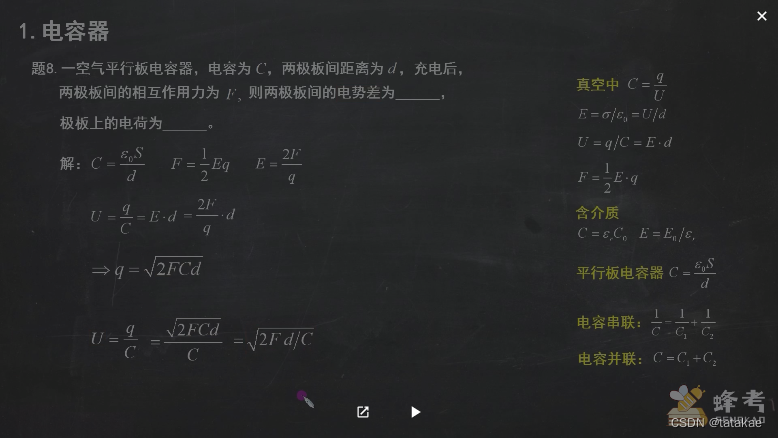 1.电容器
题8.一空气平行板电容器，电容为 C，两极板间距离为 d，充电后，
两极板间的相互作用力为 F，则两极板间的电势差为______，
极板上的电荷为______。
解：C = ε₀S/d    F = 1/2 Eq    E = 2F/q
U = q/C = E·d = 2F/q · d
⇒ q = √(2FCd)
U = q/C = √(2FCd)/C = √(2Fd/C)
真空中 C = q/U
E = σ/ε₀ = U/d
U = q/C = E·d
F = 1/2 E·q
含介质
C = εᵣC₀  E = E₀/εᵣ
平行板电容器 C = ε₀S/d
电容串联：1/C = 1/C₁ + 1/C₂
电容并联：C = C₁+C₂
蜂考
FENGKAO
CSDN @tatakae